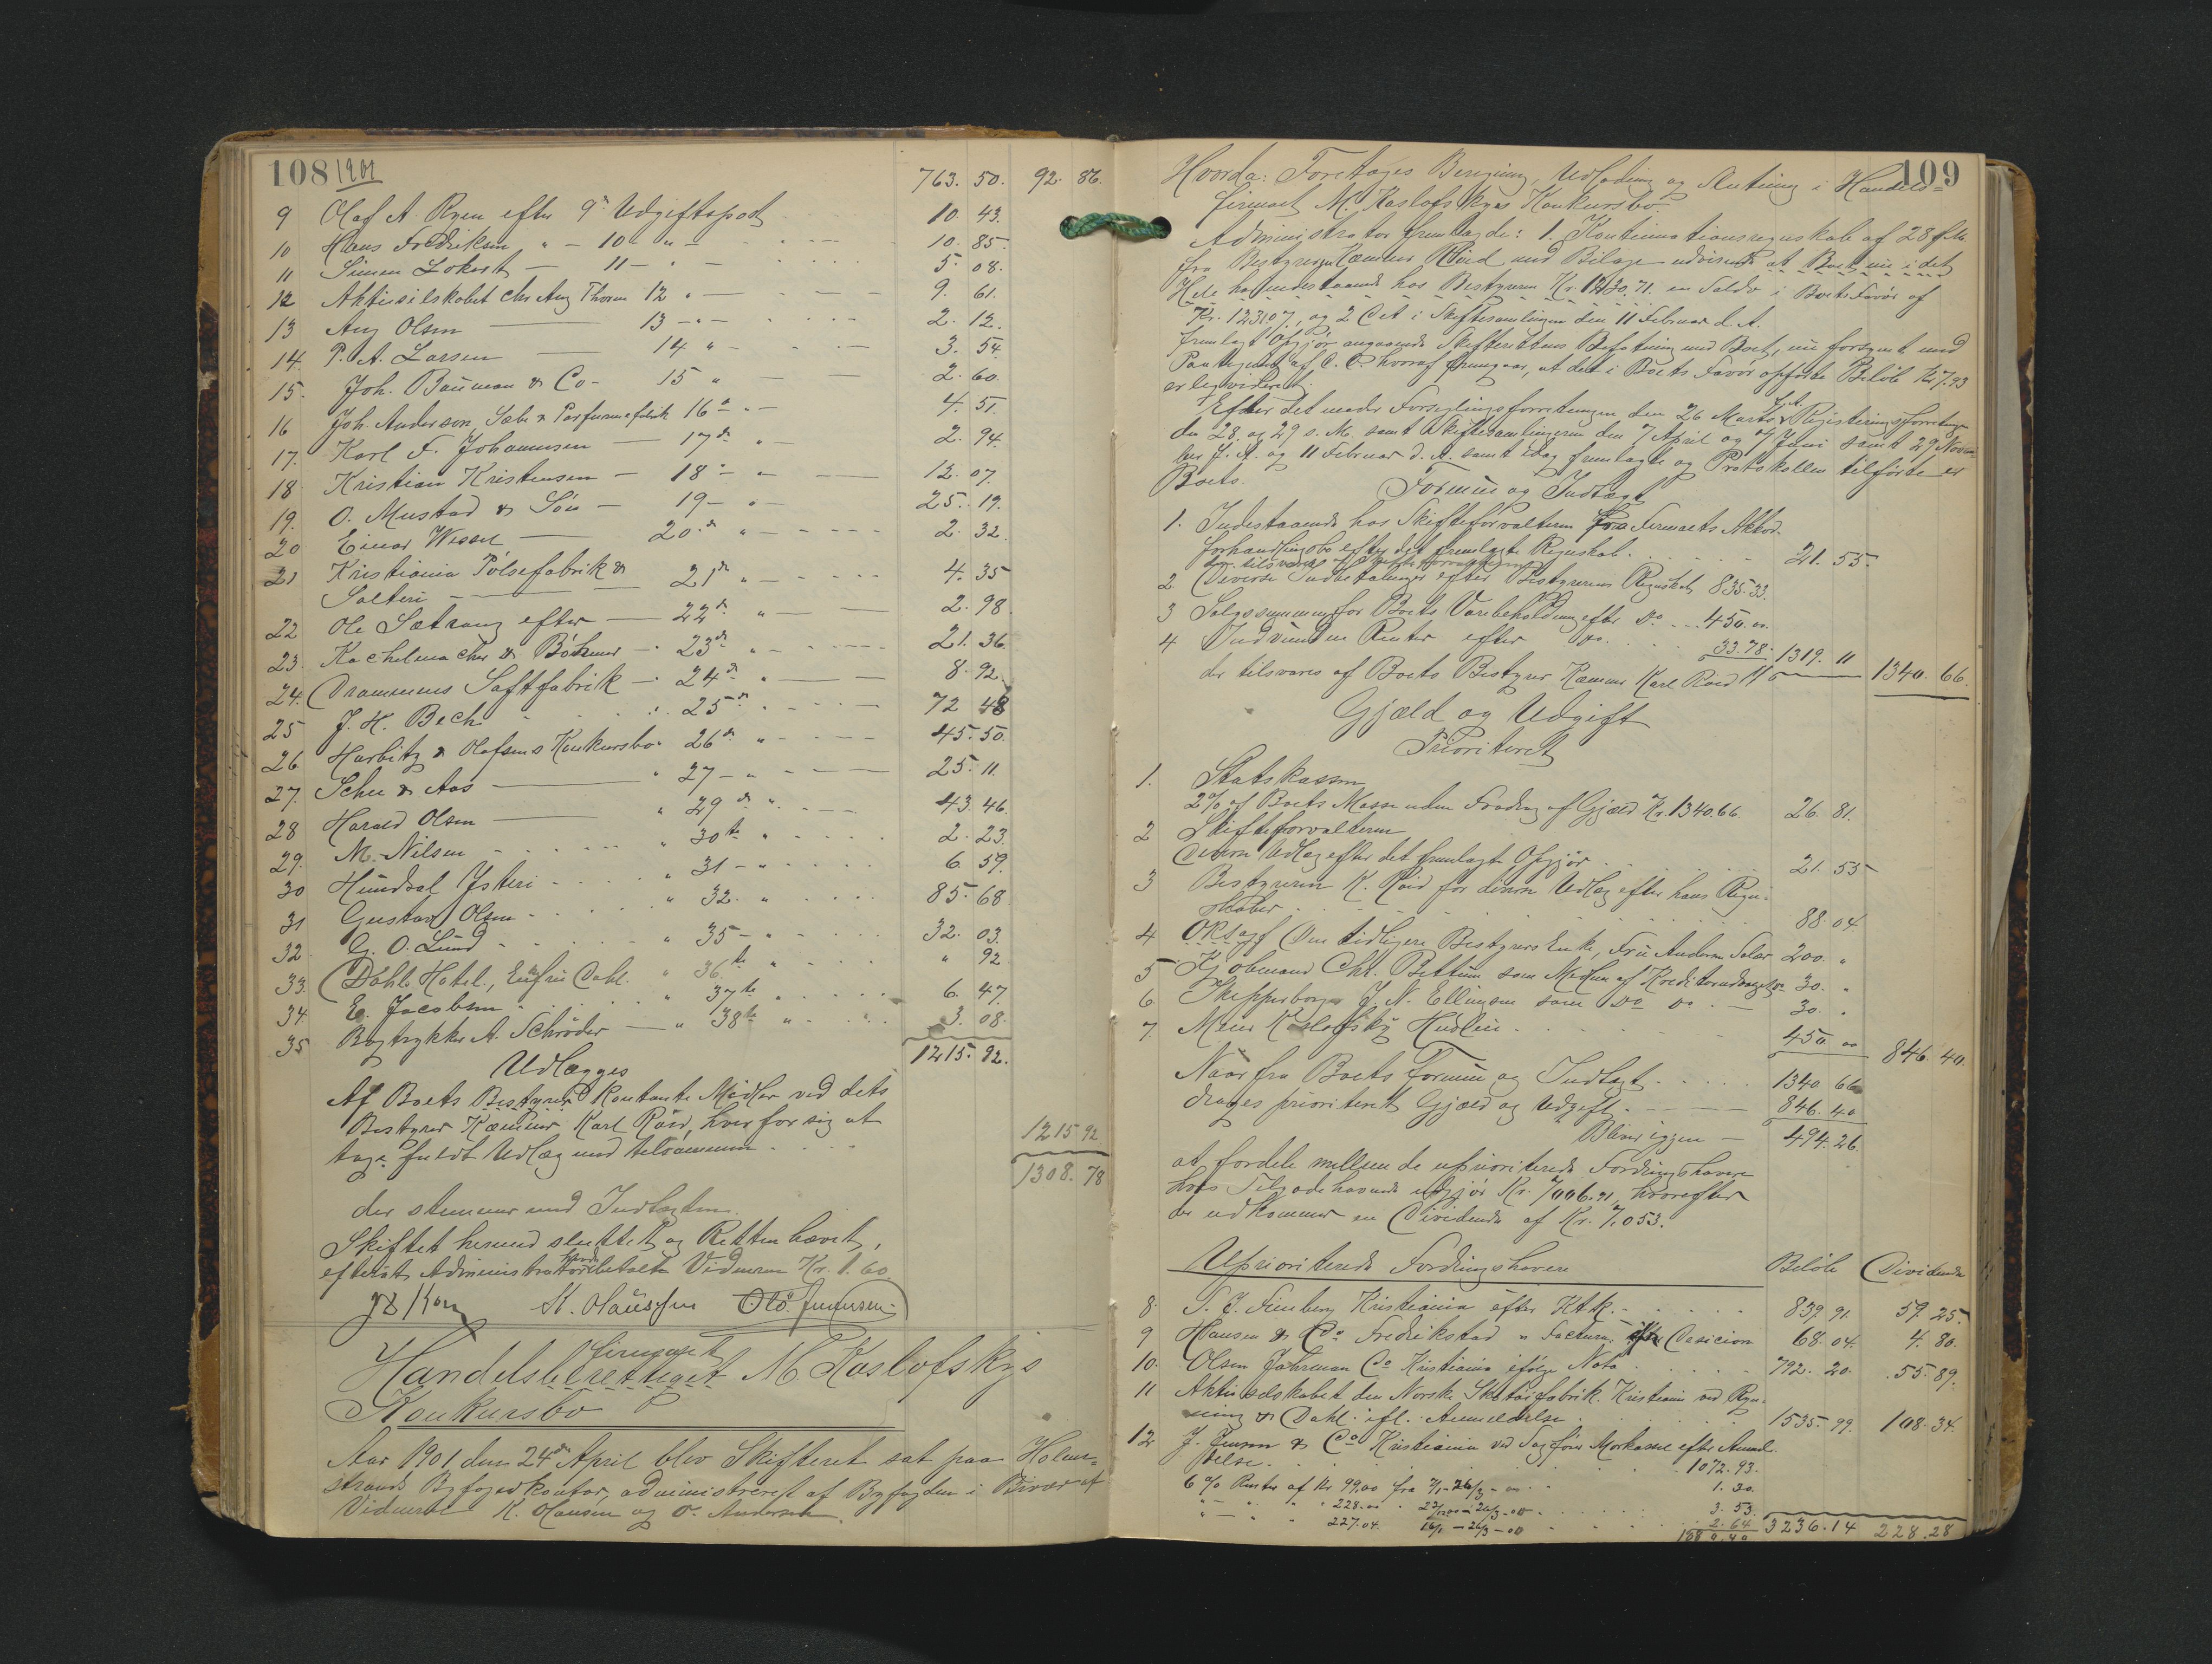 108 1901
763. 50. 92. 86.
9 Olaf A. Ryen efter 9de Udgiftspost 10. 43.
10 Hans Fredriksen " - 10 " " - 10. 85.
11 Simen Lokert - 11 - " - 5. 08.
12 Aktieselskabet Chr Aug Thorne 12 " - 9. 61.
13 Aug Olsen - 13 - " - 2. 12.
14. P. A. Larsen - 14 " - 3. 54.
15. Joh. Bauman & Co - 15 " - 2. 60.
16 Joh. Anderson, Sæbe & Parfumefabrik 16de " - 4. 51.
17. Karl F. Johannesen - 17de " - 2. 94.
18 Kristian Kristensen - 18 - " - 12. 07.
19. O. Mustad & Søn - 19 - " - 25. 19.
20 Einar Wessel - 20de " - 2. 32.
21 Kristiania Pølsefabrik &
Salteri - 21de " - 4. 35
22 Ole Sætrang efter - 22de " - 2. 98.
23. Kachelmacher & Böhmer - 23de " - 21. 36.
24. Drammens Saftfabrik - 24de " - 8. 92.
25 J. H. Bech . . . 25de " - 72 48
26 Harbitz & Olafsens Konkursbo " 26de " - 45. 50.
27. Schee & Aas - " 27 - " - 25. 11.
28 Harald Olsen - " 29de " - 43. 46.
29. M. Nilsen - " 30te " 2. 23.
30 Hundsal Ysteri - " 31 - " 6. 59.
31 Gustav Olsen - " 32. " 85. 68
32. G. O. Lund - " 35 - " 32. 03.
33. Dahls Hotel, Enkefru Dahl. " 36te " " 92
34. E. Jacobsen " 37te " 6. 47.
35 Bogtrykker A. Schrøder - " 38te " 3. 08.
1215. 92.
Udlægges
Af Boets Bestyrer Kontante Midler ved dets
Bestyrer Kæmner Karl Röid, hver for sig at
tage fuldt Udlæg med tilsammen . . . 1215 92
1308. 78
der stemmer med Indtægten.
Skiftet hermed sluttet og Retten hævet,
efterat Administrator havde betalt Vidnerne Kr. 1.60.
K. Olaussen
Handelsberettiget firmaet M Koslofskys
Konkursbo
Aar 1901 den 24de April blev Skifteret sat paa Holme=
strands Byfogedkontor, administreret af Byfogden i Bivær af
Vidnerne K. Olausen og O. Andersen.
109
Hvorda: Foretoges Berigning, Udlodning og Slutning i Handels=
firmaet M. Koslofskys Konkursbo.
Administrator fremlagde: 1. Kontinuationsregnskab af 28 f.M.
fra Bestyreren Kæmner Röid med Bilage udvisende at Boet nu i det
Hele har indestaaende hos Bestyreren Kr. 1230.71. en Saldo i Boets Favør af
Kr. 1231.07, og 2 Det i Skiftesamlingen den 11 Februar d. A.
fremlagt Opgjør angaaende Skifterettens Befatning med Boet, nu forsynet med
Paategning af C. C. hvoraf fremgaar, at det i Boets Favør opførte Beløb Kr 7.93
er ligvideret.
Efter det under Forseglingsforretningen den 26 Marts f. A. Registreringsforretningen
den 28. og 29 s. M. samt Skiftesamlingerne den 7 April og 7 Juni samt 29 Novem
ber f. A. og 11 Februar d. A. samt idag fremlagte og Protokollen tilførte er
Boets
Formue og Indtægt
1. Indestaaende hos Skifteforvalteren fra Firmaets Akkord-
forhandlingsbo efter det fremlagte Regnskab 21. 55.
2 Diverse Indbetalinger efter Bestyrerens Regnskab 835.33.
3 Salgssummen for Boets Varebeholdning efter Do . . 450.00.
4 Indvundne Renter efter Do. . . . 33.78. 1319. 11
der tilsvares af Boets Bestyrer Kæmner Karl Röid 1340. 66.
Gjæld og Udgift
Prioriteret
1. Statskassen
2% af Boets Masse uden Fradrag af Gjæld Kr. 1340.66 26. 81.
2 Skifteforvalteren
Diverse Udlæg efter det fremlagte Opgjør 21. 55
3 Bestyreren K. Röid for diverse Udlæg efter hans Regn-
skaber 88. 04
4 Den tidligere Bestyrers Enke, Fru Andersen Salær 200. "
5 Kjøbmand Chr. Bettum som Medlem af Kreditorudvalget 30. "
6 Skipperborger J. N. Ellingsen som Do Do. - 30. "
7. Meier Koslofsky Husleie . . . 450. 00 846. 40.
Naar fra Boets Formue og Indtægt 1340. 66
drages prioriteret Gjæld og Udgift 846. 40
Bliver igjen - 494. 26.
at fordele mellem de uprioriterede Fordringshavere
hvis Tilgodehavende udgjør Kr. 7006.71, hvorefter
der udkommer en Dividende af Kr. 7.053.
Uprioriterede Fordringshavere Beløb Dividende
8. T. J. Finberg Kristiania efter Kt.k. 839. 91. 59. 25.
9 Hansen & Co Fredrikstad " Factura 68. 04. 4. 80.
10. Olsen Jahrman Co Kristiania ifølge Nota 792. 20. 55. 89.
11 Aktieselskabet den Norske Skotøifabrik. Kristiania ved Ryn-
ning & Dahl ifl. Anmeldelse 1535. 99. 108. 34.
12 J. Jensen & Co Kristiania ved Sagfører Morkassel efter Anmel-
delse 1072. 93.
6 % Renter af Kr 99,00 fra 7/1-26/3-00 1. 30.
" - " " 228.00 " 26/3-00 3. 53.
" - " " 227.04. 16/1-26/3-00 2. 64
3236. 14 228. 28